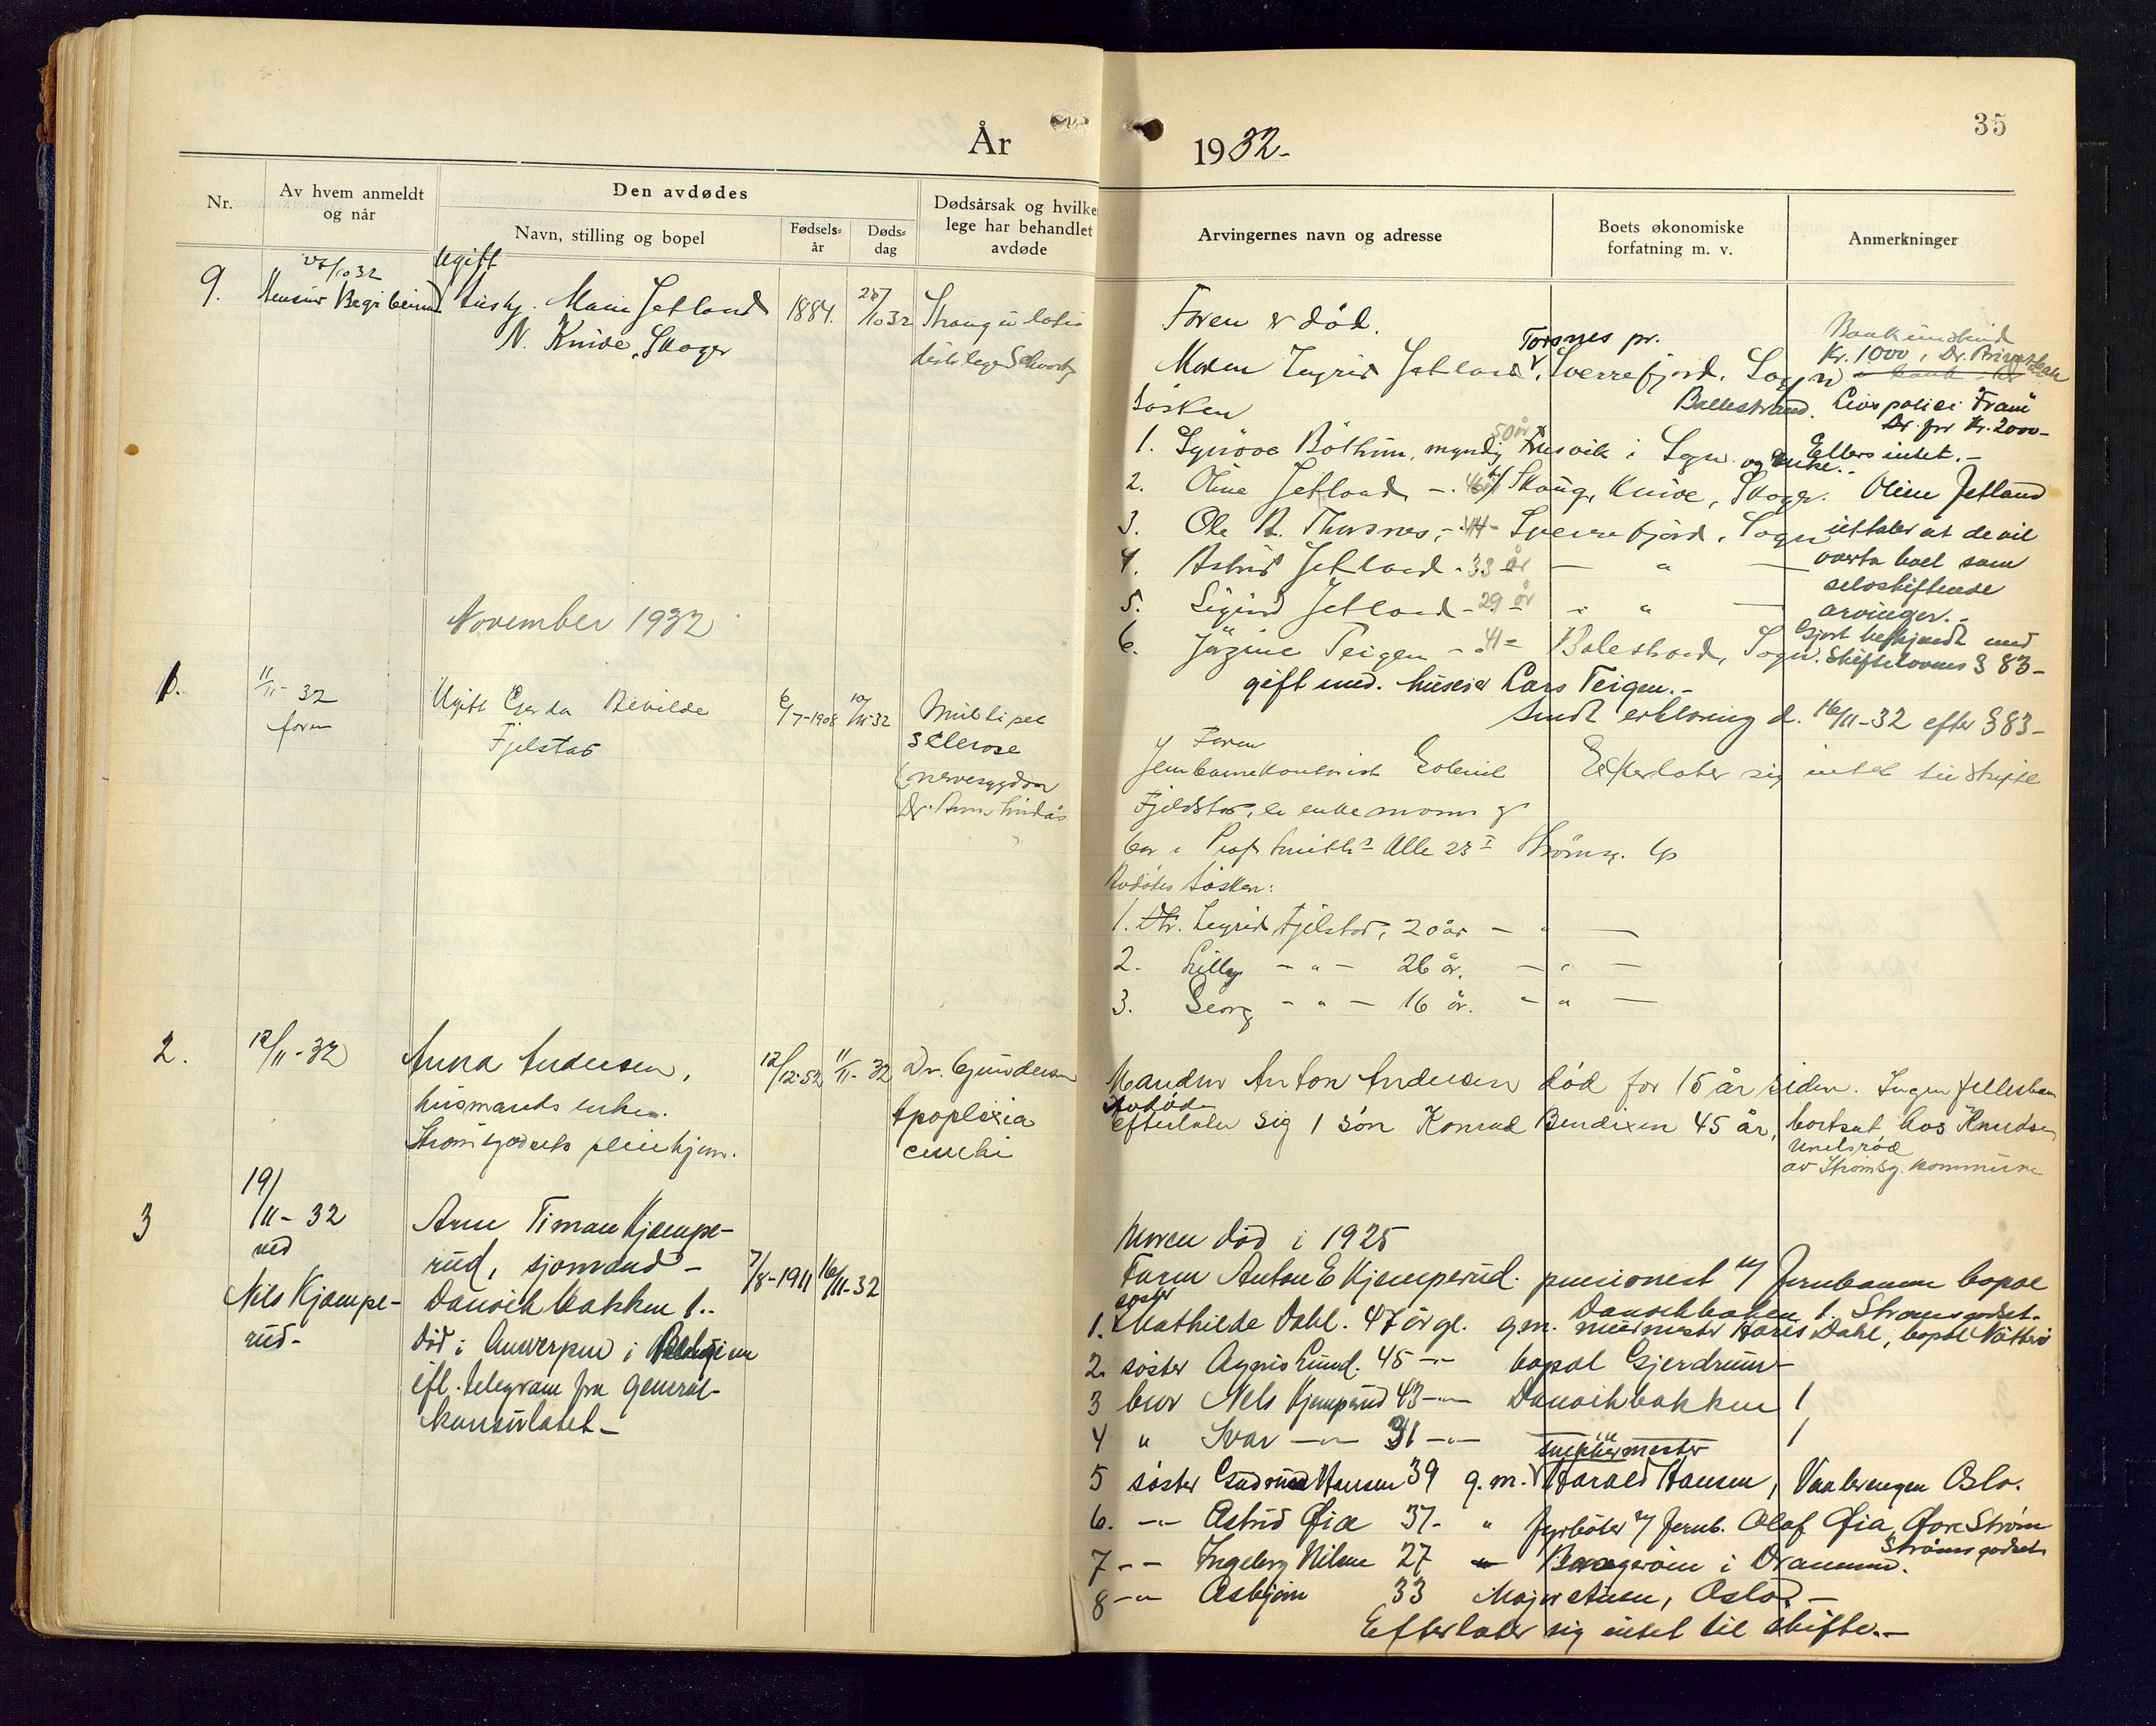 År
1932-
35
Nr.
Av hvem anmeldt
og når
Den avdødes
Navn, stilling og bopel
Fødsels-
år
Døds-
dag
Dødsårsak og hvilke
lege har behandlet
avdøde
Arvingernes navn og adresse
Boets økonomiske
forfatning m. v.
Anmerkninger
9.
/10 32
Ugift
Marie Jetland
N. Knive, Skoger
1884.
/10 32
Faren er død.
Moren Ingrid Jetland, Sverrefjord, Sogn
Torsnes pr.
Balestrand.
Kr. 1000, Dr.
Livspolise "Fram"
Dr. for Kr. 2000-
Ellers intet.-
Søsken
1. Synøve Böthun, myndig 50 år i Sogn og enke.-
2. Oline Jetland - Skaug, Knive, Skoger.
3. Ole R. Thorsnes, - 44 - Sverrefjord, Sogn
4. Astrid Jetland - 33 år - " -
5. Sigurd Jetland - 29 år - " -
6. Teigen - 41 - Balestrand, Sogn.
gift med. Lars Teigen.-
Oline Jetland
uttaler at de vil
overta boet som
selvskiftende
arvinger.-
Gjort bekjendt med
Skiftelovens § 83-
Sendt erklæring d. 16/11-32 efter § 83-
November 1932
1.
11/11- 32
faren
Ugift Gerda
Fjelstad
6/7-1908
10/11-32
Multipel
Sclerose
(nervesygdom
Faren
Jernbanekontorist
Fjeldstad, er enkemann og
bor i Prof. Smiths Alle 23 I Strømsg.
Avdødes søsken:
1. Ingrid Fjelstad, 20 år - " -
2. Lilly - " - 26 år. - " -
3. Georg - " - 16 år. - " -
Efterlater sig intet til skifte
2.
12/11-32
Anna Andersen,
husmands enke.
Strømsgodsets pleiehjem.
12/12-52
11/11-32
Dr. Gundersen
Apoplexia
Manden Anton Andersen død for 15 år siden.
Avdøde
efterlater sig 1 søn Konrad Bendixen 45 år, bortsat hos Knudsen
av Strømsg. kommune
3
19/11-32
ved
Nils Kjempe-
rud-
Arne Timan Kjempe-
rud, sjømand -
Danvikbakken 1.-
død i Antwerpen i Belgien
ifl. telegram fra general-
konsulatet-
7/8-1911
16/11-32
Moren død i 1925
Faren Anton E Kjemperud. pensionert v/ Jernbanen bopæl
Danvikbakken 1. Strømsgodset.
1. søster Mathilde Dahl. 47 år gl. g.m. murmester Hans Dahl, bopæl
2. søster Agnes Lund. 45 -"- bopæl Gjerdrum-
3 bror Nils Kjemperud 43 -"- Danvikbakken 1
4 " Ivar -"- 31 -"- " 1
5 søster Gudrun Hansen 39 g.m. Harald Hansen, Vaalerengen Oslo.
6. -"- Astrid Øia 37- " fyrbøter v/ Jernb. Olaf Øia, Øvre Strøm
Strømsgodset
7 -"- Ingeborg 27 i Drammen.
8 -"- Asbjørn 33 Majorstuen, Oslo.-
Efterlater sig intet til skifte.-